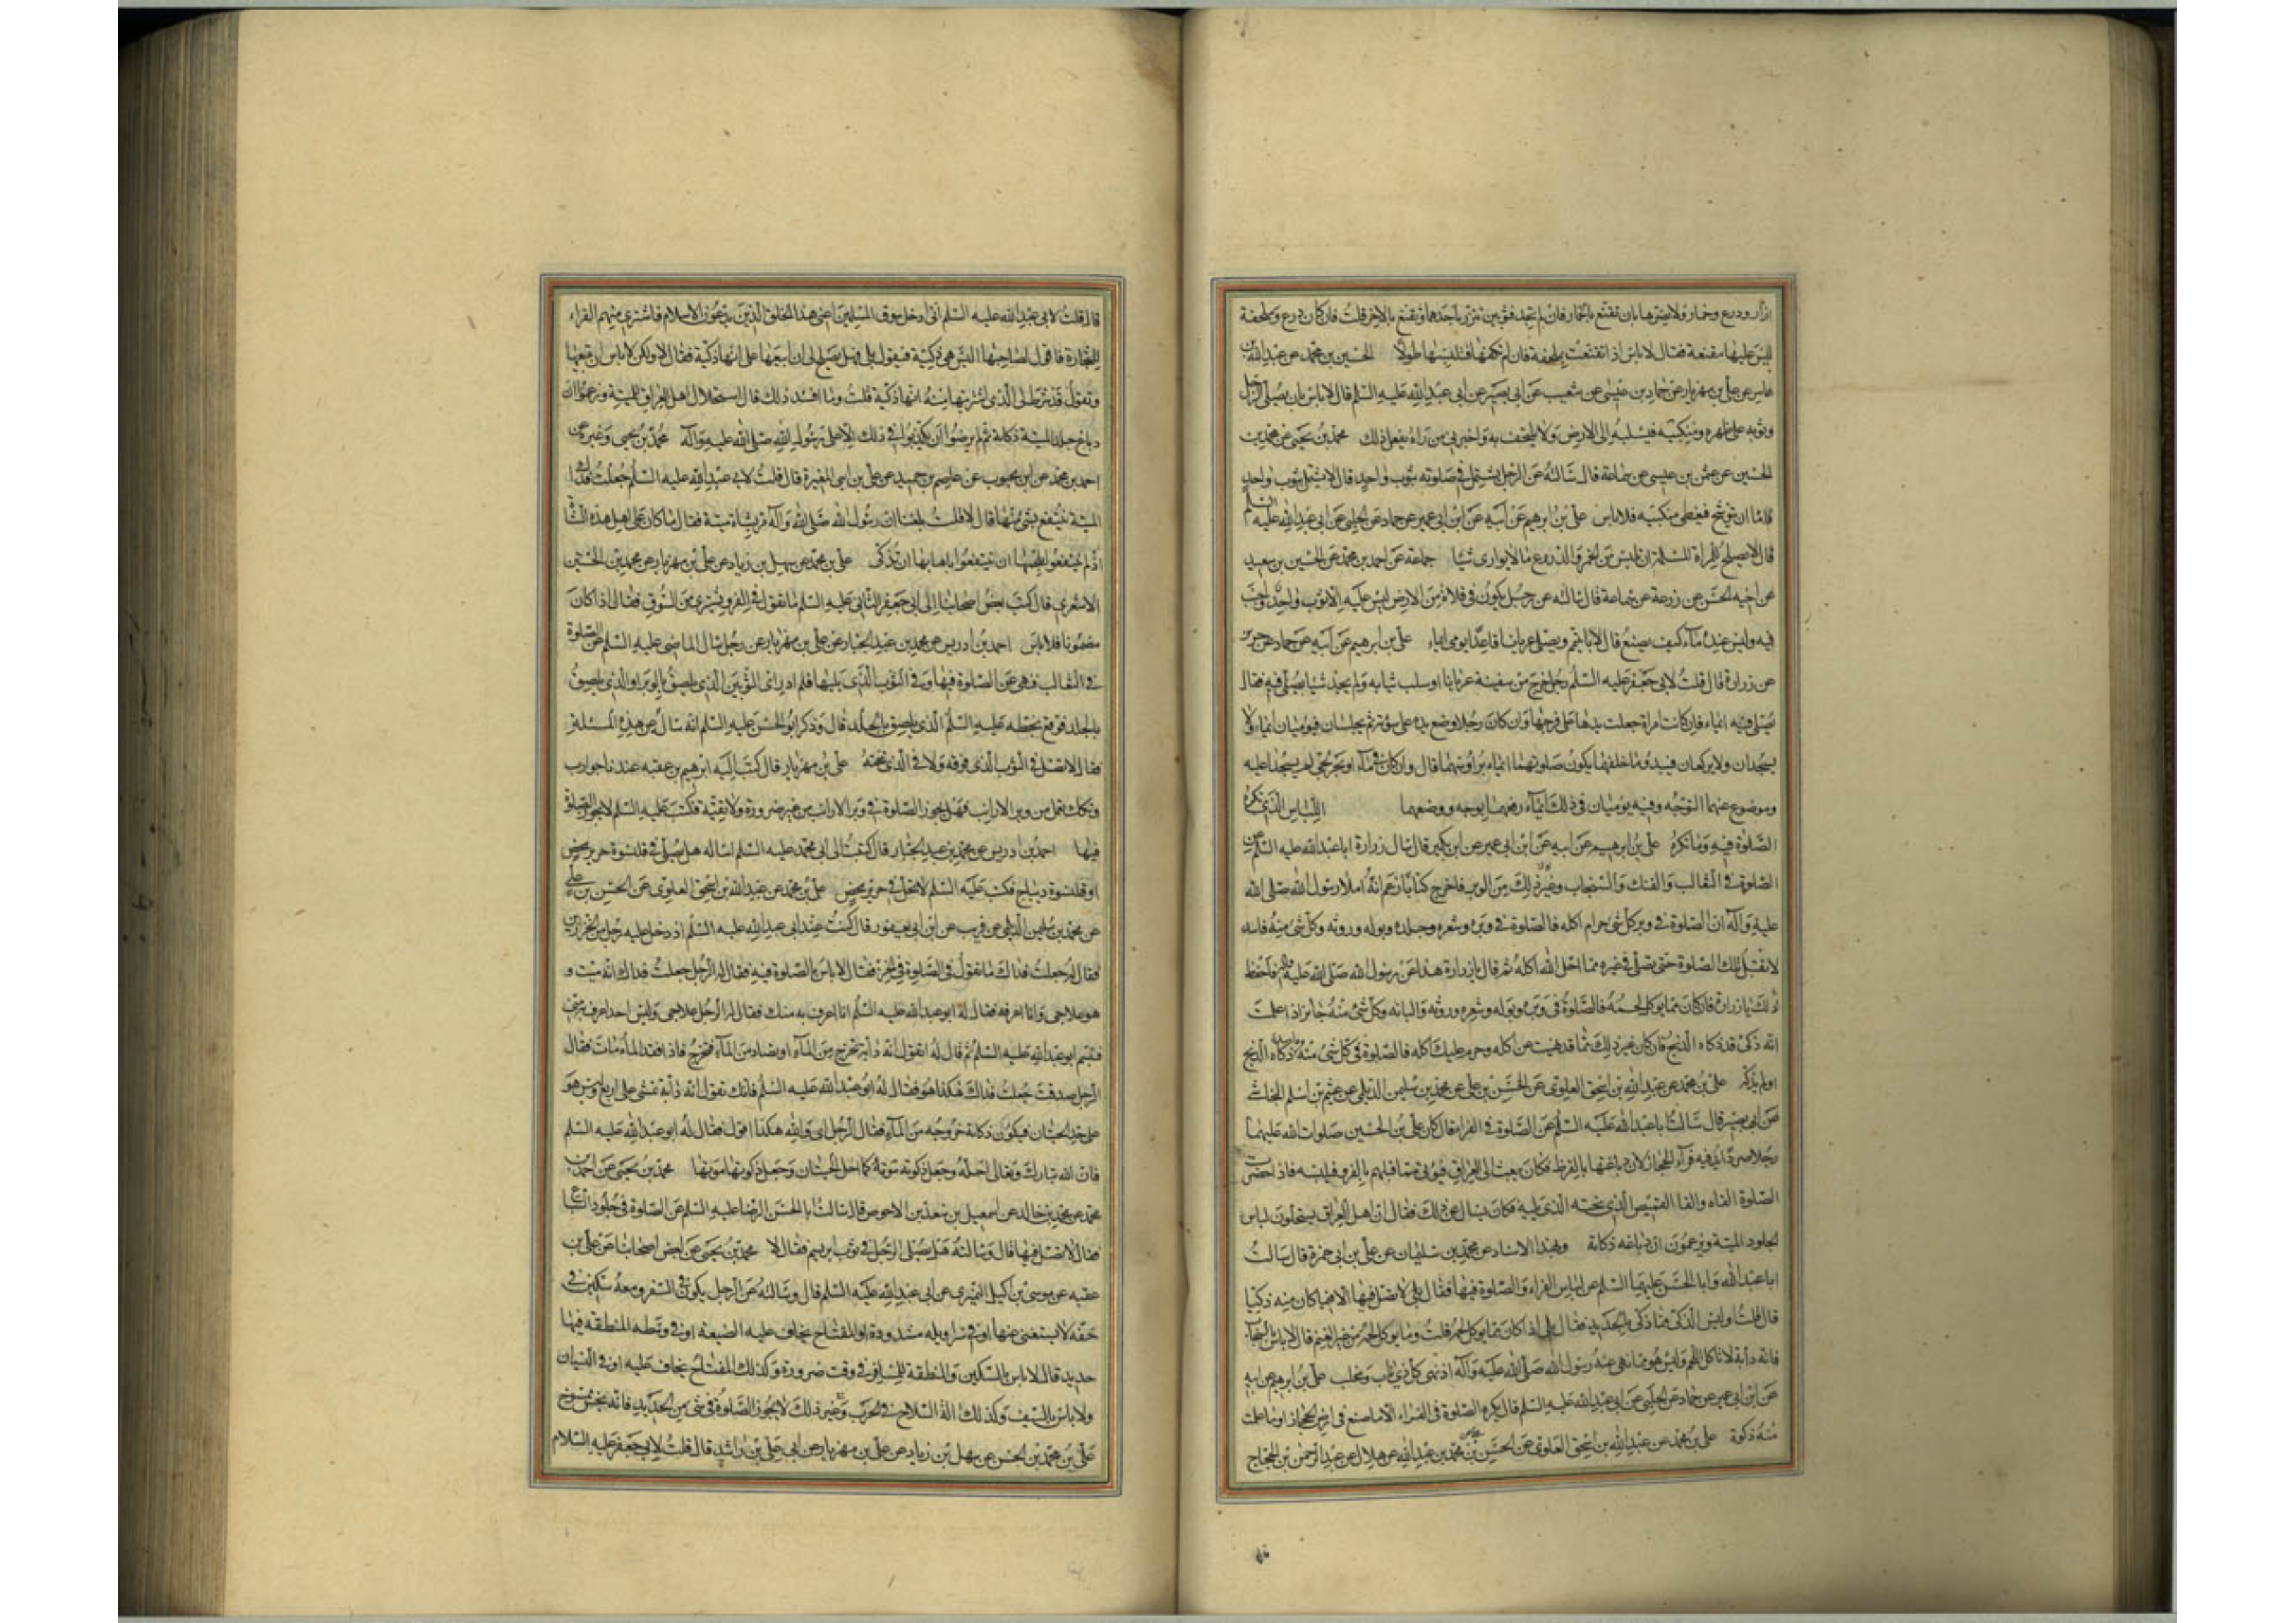 ازار ودرع وخمار ولا يضرها بان تقنع بالخمار فان لم تجد فثوبين تتزر باحدهما وتقنع بالاخر قلت فان كان درع وملحفة
ليس عليها مقنعة فقال لا باس اذا تقنعت بملحفة فان لم تكفها فتلبسها طولا الحسين بن محمد عن عبد الله بن
عامر عن علي بن مهزيار عن حماد بن عيسى عن شعيب عن ابي بصير عن ابي عبد الله عليه السلم قال لا باس بان يصلي الرجل
وثوبه على ظهره ومنكبيه فيسبله الى الارض ولا يلتحف به واخبرني من راه يفعل ذلك محمد بن يحيى عن محمد بن
الحسين عن عثمن بن عيسى عن سماعة قال سالته عن الرجل يشتمل في صلوته بثوب واحد قال لا يشتمل بثوب واحد
فاما ان توشح فيغطي منكبيه فلا باس علي بن ابرهيم عن ابيه عن ابن ابي عمير عن حماد عن الحلبي عن ابي عبد الله عليه السلم
قال لا يصلح للمراة المسلمة ان تلبس من الخمر والدروع ما لا يواري شيئا جماعة عن احمد بن محمد عن الحسين بن سعيد
عن اخيه الحسن عن زرعة عن سماعة قال سالته عن رجل يكون في فلاة من الارض ليس عليه الا ثوب واحد واجنب
فيه وليس عنده ماء كيف يصنع قال لا يا تيمم ويصلي عريانا قاعدا يومي ايماء علي بن ابرهيم عن ابيه عن حماد عن حريز
عن زرارة قال قلت لابي جعفر عليه السلم رجل خرج من سفينة عريانا او سلب ثيابه ولم يجد شيئا يصلي فيه فقال
يصلي فيه ايماء فان كانت امراة جعلت يدها على فرجها وان كان رجلا وضع يده على سوئته ثم يجلسان فيوميان ايماء ولا
يسجدان ولا يركعان فيبدو ما خلفهما يكون صلوتهما ايماء برؤسهما قال وان كان في ماء او بحر لجي لم يسجدا عليه
وموضوع عنهما التوجه وفيه يوميان في ذلك ايماء رفعهما بوجه ووضعهما اللباس الذي تكره
الصلوة فيه وما لا تكره علي بن ابرهيم عن ابيه عن ابن ابي عمير عن ابن بكير قال سال زرارة ابا عبد الله عليه السلم عن
الصلوة في الثعالب والفنك والسنجاب وغير ذلك من الوبر فاخرج كتابا زعم انه املاء رسول الله صلى الله
عليه وآله ان الصلوة في وبر كل شئ حرام اكله فالصلوة في وبره وشعره وجلده وبوله وروثه وكل شئ منه فاسد
لا تقبل تلك الصلوة حتى يصلي في غيره مما احل الله اكله ثم قال يا زرارة هذا عن رسول الله صلى الله عليه وآله فاحفظ
ذلك يا زرارة فان كان مما يوكل لحمه فالصلوة في وبره وبوله وشعره وروثه والبانه وكل شئ منه جائز اذا علمت
انه ذكي قد ذكاه الذبح فان كان غير ذلك مما قد نهيت عن اكله وحرم عليك اكله فالصلوة في كل شئ منه فاسد ذكاه الذبح
او لم يذكه علي بن محمد عن عبد الله بن اسحق العلوي عن الحسن بن علي عن محمد بن سليمن الديلمي عن عيثم بن اسلم النجاشي
عن ابي بصير قال سالت ابا عبد الله عليه السلم عن الصلوة في الفراء فقال كان علي بن الحسين صلوات الله عليهما
رجلا صردا لا يدفيه فراء الحجاز لان دباغتها بالقرظ فكان يبعث الى العراق فيؤتى مما قبلهم بالفرو فيلبسه فاذا حضرت
الصلوة القاه والقا القميص الذي تحته الذي يليه فكان يسال عن ذلك فقال ان اهل العراق يستحلون لباس
الجلود الميتة ويزعمون ان دباغه ذكاته وبهذا الاسناد عن محمد بن سليمان عن علي بن ابي حمزة قال سالت
ابا عبد الله وابا الحسن عليهما السلم عن لباس الفراء والصلوة فيها فقال بلى لا تصل فيها الا فيما كان منه ذكيا
قال قلت اوليس الذكي ما ذكي بالحديد فقال بلى اذا كان مما يوكل لحمه قلت وما يوكل لحمه من غير الغنم قال لا باس بالسنجاب
فانه دابة لا تاكل اللحم وليس هو مما نهى عنه رسول الله صلى الله عليه وآله اذ نهى كل ذي ناب ومخلب علي بن ابرهيم عن ابيه
عن ابن ابي عمير عن حماد عن الحلبي عن ابي عبد الله عليه السلم قال يكره الصلوة في الفراء الا ما صنع في ارض الحجاز او ما علمت
منه ذكوة علي بن محمد عن عبد الله بن اسحق العلوي عن الحسن بن علي عن محمد بن عبد الله عن هلال عن عبد الرحمن بن الحجاج
قال قلت لابي عبد الله عليه السلم اني ادخل سوق المسلمين اعني هذا الخلق الذين يدعون الاسلام فاشتري منهم الفراء
للتجارة فاقول لصاحبها اليس هي ذكية فيقول بلى فهل يصلح لي ان ابيعها على انها ذكية فقال لا ولكن لا باس ان تبيعها
وتقول قد شرط لي الذي اشتريتها منه انها ذكية قلت وما افسد ذلك قال استحلال اهل العراق للميتة وزعموا ان
دباغ جلد الميتة ذكاته ثم لم يرضوا ان يكذبوا في ذلك الا على رسول الله صلى الله عليه وآله محمد بن يحيى وغيره عن
احمد بن محمد عن ابن محبوب عن عاصم بن حميد عن علي بن ابي المغيرة قال قلت لابي عبد الله عليه السلم جعلت فداك
الميتة ينتفع بشئ منها قال لا قلت بلغنا ان رسول الله صلى الله وآله مر بشاة ميتة فقال ما كان على اهل هذه الشاة
اذ لم ينتفعوا بلحمها ان ينتفعوا باهابها ان تذكى علي بن محمد عن سهيل بن زياد عن علي بن مهزيار عن محمد بن الحسين
الاشعري قال كتب بعض اصحابنا الى ابي جعفر الثاني عليه السلم ما تقول في الفرو يشترى من السوق فقال اذا كان
مضمونا فلا باس احمد بن ادريس عن محمد بن عبد الجبار عن علي بن مهزيار عن رجل سال الماضي عليه السلم عن الصلوة
في الثعالب فنهى عن الصلوة فيها وفي الثوب الذي يليها فلم ادر اي الثوبين الذي يلصق بالوبر او الذي يلصق
بالجلد فوقع بخطه عليه السلم الذي يلصق بالجلد قال وذكر ابو الحسن عليه السلم انه ساله عن هذه المسئلة
فقال لا تصل في الثوب الذي فوقه ولا في الذي تحته علي بن مهزيار قال كتب اليه ابرهيم بن عقبه عندنا جوارب
وتكك تعمل من وبر الارانب فهل يجوز الصلوة في وبر الارانب من غير ضرورة ولا تقية فكتب عليه السلم لا يجوز الصلوة
فيها احمد بن ادريس عن محمد بن عبد الجبار قال كتبت الى ابي محمد عليه السلم اساله هل يصلى في قلنسوة حرير محض
او قلنسوة ديباج فكتب عليه السلم لا تحل في حرير محض علي بن محمد عن عبد الله بن اسحق العلوي عن الحسن بن علي
عن محمد بن سليمن الديلمي عن قريب عن ابن ابي يعفور قال كنت عند ابي عبد الله عليه السلم اذ دخل عليه رجل من الخزازين
فقال له جعلت فداك ما تقول في الصلوة في الخز فقال لا باس بالصلوة فيه فقال له الرجل جعلت فداك انه ميت و
هو علاجي وانا اعرفه فقال له ابو عبد الله عليه السلم انا اعرف به منك فقال له الرجل علاجي وليس احد اعرف به مني
فتبسم ابو عبد الله عليه السلم ثم قال له اتقول انه دابة تخرج من الماء او يصاد من الماء فتخرج فاذا فقد الماء مات فقال
الرجل صدقت جعلت فداك هكذا هو فقال له ابو عبد الله عليه السلم فانك تقول انه دابة تمشي على اربع وليس هو
على حد الحيتان فيكون ذكاته خروجه من الماء فقال الرجل اي والله هكذا اقول فقال له ابو عبد الله عليه السلم
فان الله تبارك وتعالى احله وجعل ذكوته موته كما احل الحيتان وجعل ذكوتها موتها محمد بن يحيى عن احمد بن
محمد عن محمد بن خالد عن اسمعيل بن سعد بن الاحوص قال سالت ابا الحسن الرضا عليه السلم عن الصلوة في جلود السباع
فقال لا تصل فيها قال وسالته هل يصلي الرجل في ثوب ابريسم فقال لا محمد بن يحيى عن بعض اصحابنا عن علي بن
عقبه عن موسى بن اكيل النميري عن ابي عبد الله عليه السلم قال وسالته عن الرجل يكون في السفر ومعه سكين في
خفه لا يستغني عنها او في سراويله مشدودة او المفتاح يخاف عليه الضيعة او في وسطه المنطقة فيها
حديد قال لا باس بالسكين والمنطقة للمسافر في وقت ضرورة وكذلك المفتاح يخاف عليه او في النسيان
ولا باس بالسيف وكذلك آلة السلاح في الحرب وفي غير ذلك لا يجوز الصلوة في شئ من الحديد فانه نجس ممسوخ
علي بن محمد بن الحسن عن سهل بن زياد عن علي بن مهزيار عن ابي علي بن راشد قال قلت لابي جعفر عليه السلام